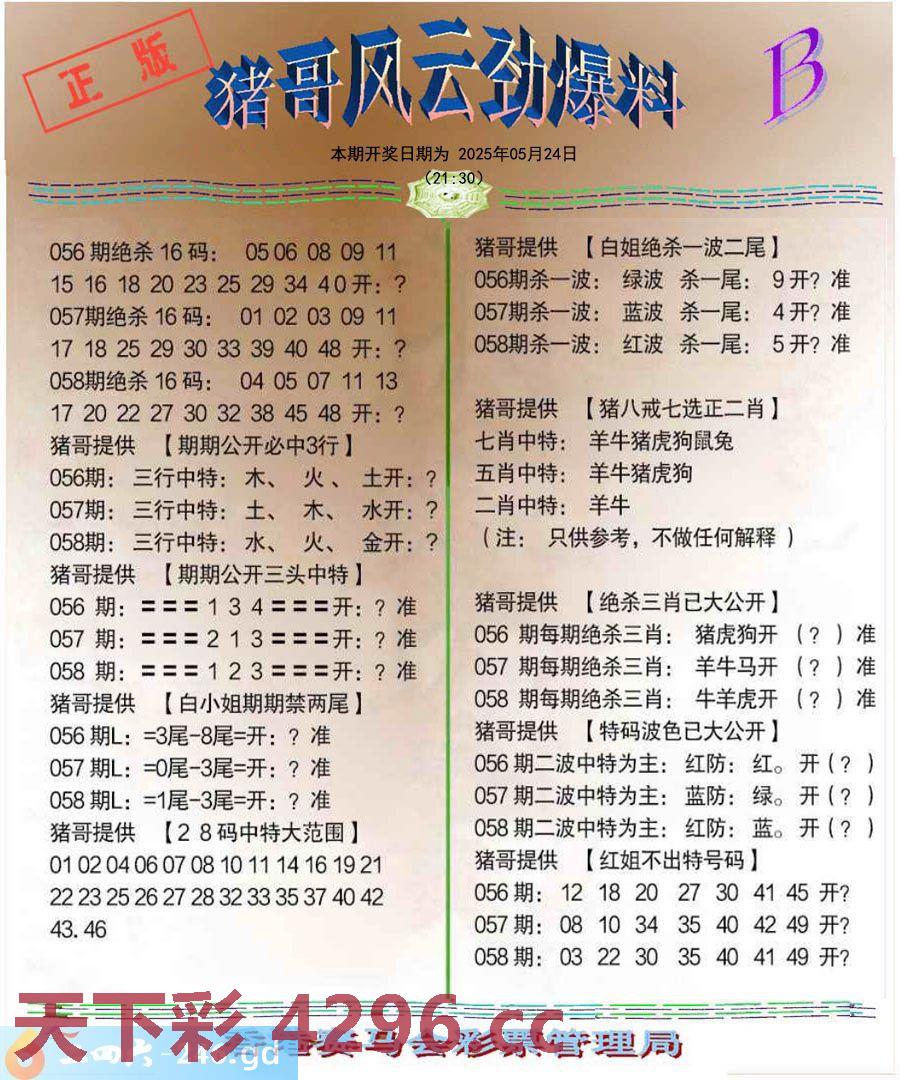 正版
猪哥风云劲爆料
B
本期开奖日期为 2025年05月24日
（21:30）
056期绝杀16码： 05 06 08 09 11
15 16 18 20 23 25 29 34 40开：?
057期绝杀16码： 01 02 03 09 11
17 18 25 29 30 33 39 40 48 开：?
058期绝杀16码： 04 05 07 11 13
17 20 22 27 30 32 38 45 48 开：?
猪哥提供 【期期公开必中3行】
056期：三行中特：木、 火、 土开：?
057期：三行中特：土、 木、 水开：?
058期：三行中特：水、 火、 金开：?
猪哥提供 【期期公开三头中特】
056 期：===134===开：? 准
057 期：===213===开：? 准
058 期：===123===开：? 准
猪哥提供 【白小姐期期禁两尾】
056期L：=3尾-8尾=开：? 准
057期L：=0尾-3尾=开：? 准
058期L：=1尾-3尾=开：? 准
猪哥提供 【28码中特大范围】
01 02 04 06 07 08 10 11 14 16 19 21
22 23 25 26 27 28 32 33 35 37 40 42
43. 46
猪哥提供 【白姐绝杀一波二尾】
056期杀一波： 绿波 杀一尾： 9开? 准
057期杀一波： 蓝波 杀一尾： 4开? 准
058期杀一波： 红波 杀一尾： 5开? 准
猪哥提供 【猪八戒七选正二肖】
七肖中特： 羊牛猪虎狗鼠兔
五肖中特： 羊牛猪虎狗
二肖中特： 羊牛
（注： 只供参考，不做任何解释 ）
猪哥提供 【绝杀三肖已大公开】
056 期每期绝杀三肖： 猪虎狗开 （? ）准
057 期每期绝杀三肖： 羊牛马开 （? ）准
058 期每期绝杀三肖： 牛羊虎开 （? ）准
猪哥提供 【特码波色已大公开】
056期二波中特为主：红防：红。开（? ）
057期二波中特为主：蓝防：绿。开（? ）
058期二波中特为主：红防：蓝。开（? ）
猪哥提供 【红姐不出特号码】
056 期： 12 18 20 27 30 41 45 开?
057 期： 08 10 34 35 40 42 49 开?
058 期： 03 22 30 35 40 41 49 开?
天下彩 4296.cc
马会彩票管理局